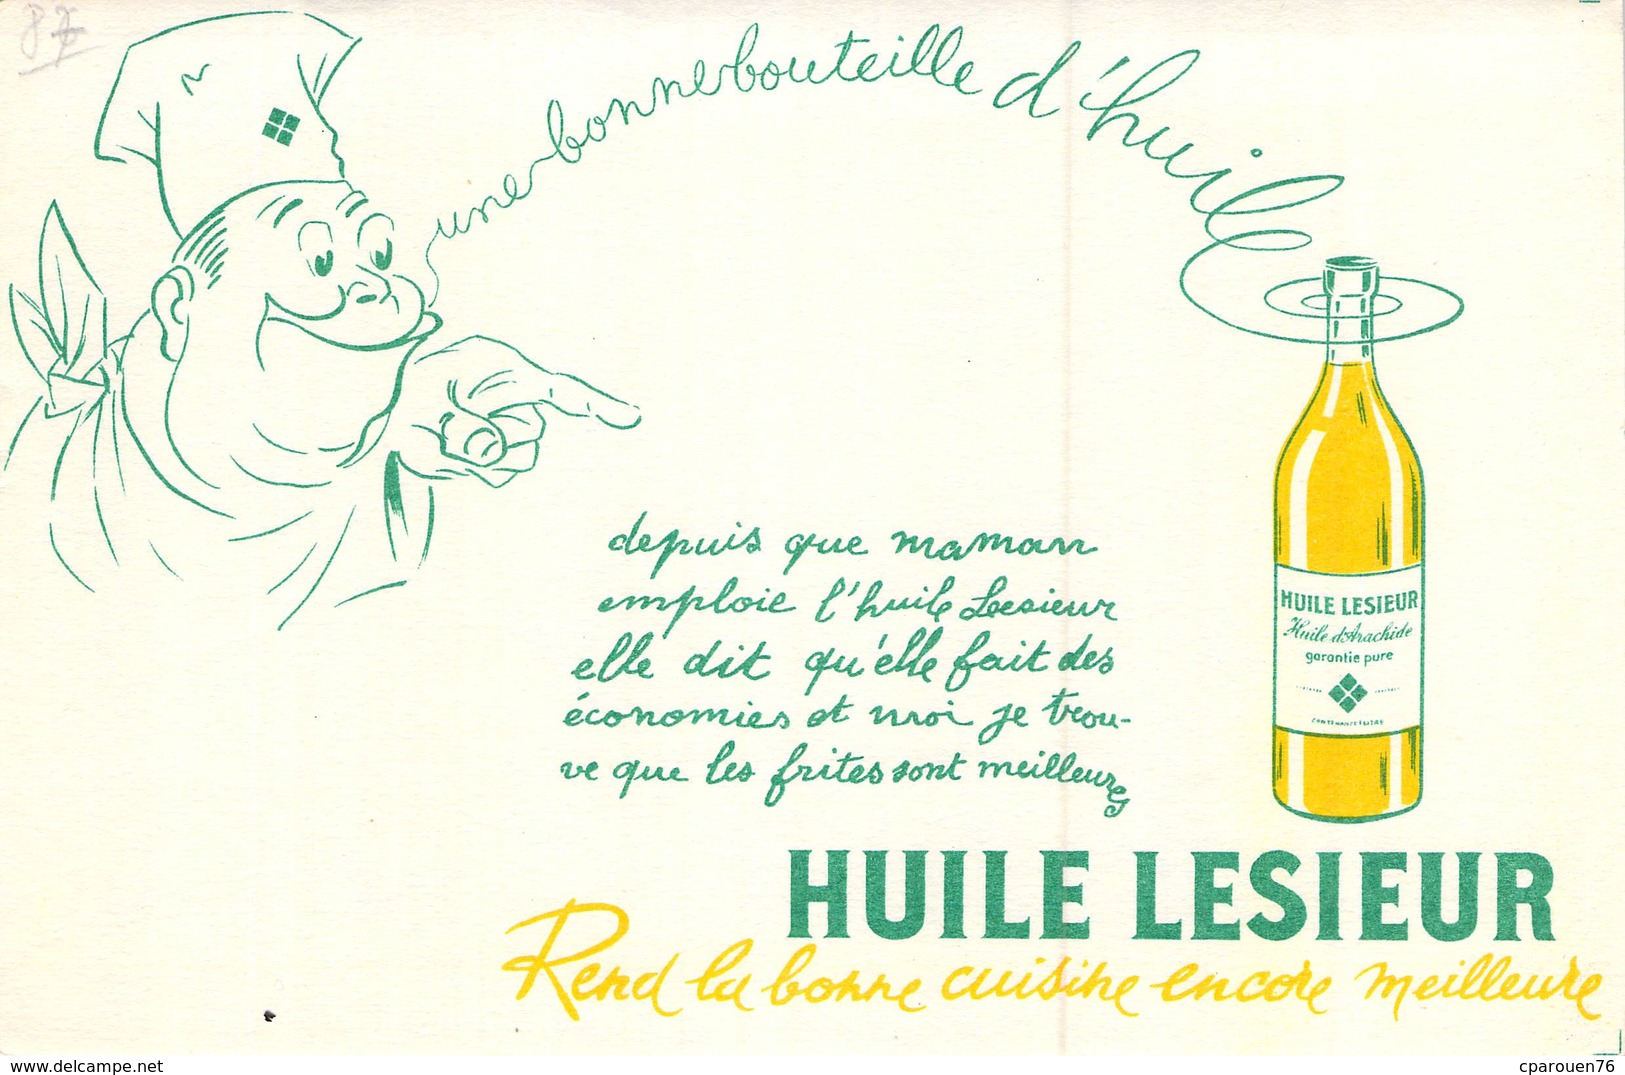 une bonne bouteille d'huile
depuis que maman
emploie l'huile Lesieur
elle dit qu'elle fait des
économies et moi je trou-
ve que les frites sont meilleures
HUILE LESIEUR
Huile d'Arachide
garantie pure
CONTENANCE 1 LITRE
HUILE LESIEUR
Rend la bonne cuisine encore meilleure
delcampe.net
cparouen76